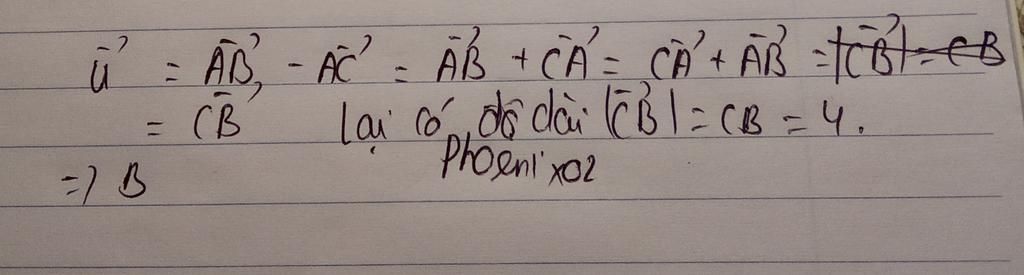 u⃗ = AB⃗ - AC⃗ = AB⃗ + CA⃗ = CA⃗ + AB⃗ = |CB⃗| = CB
= CB⃗ lại có độ dài |CB⃗| = CB = 4.
Phoenix02
=) B